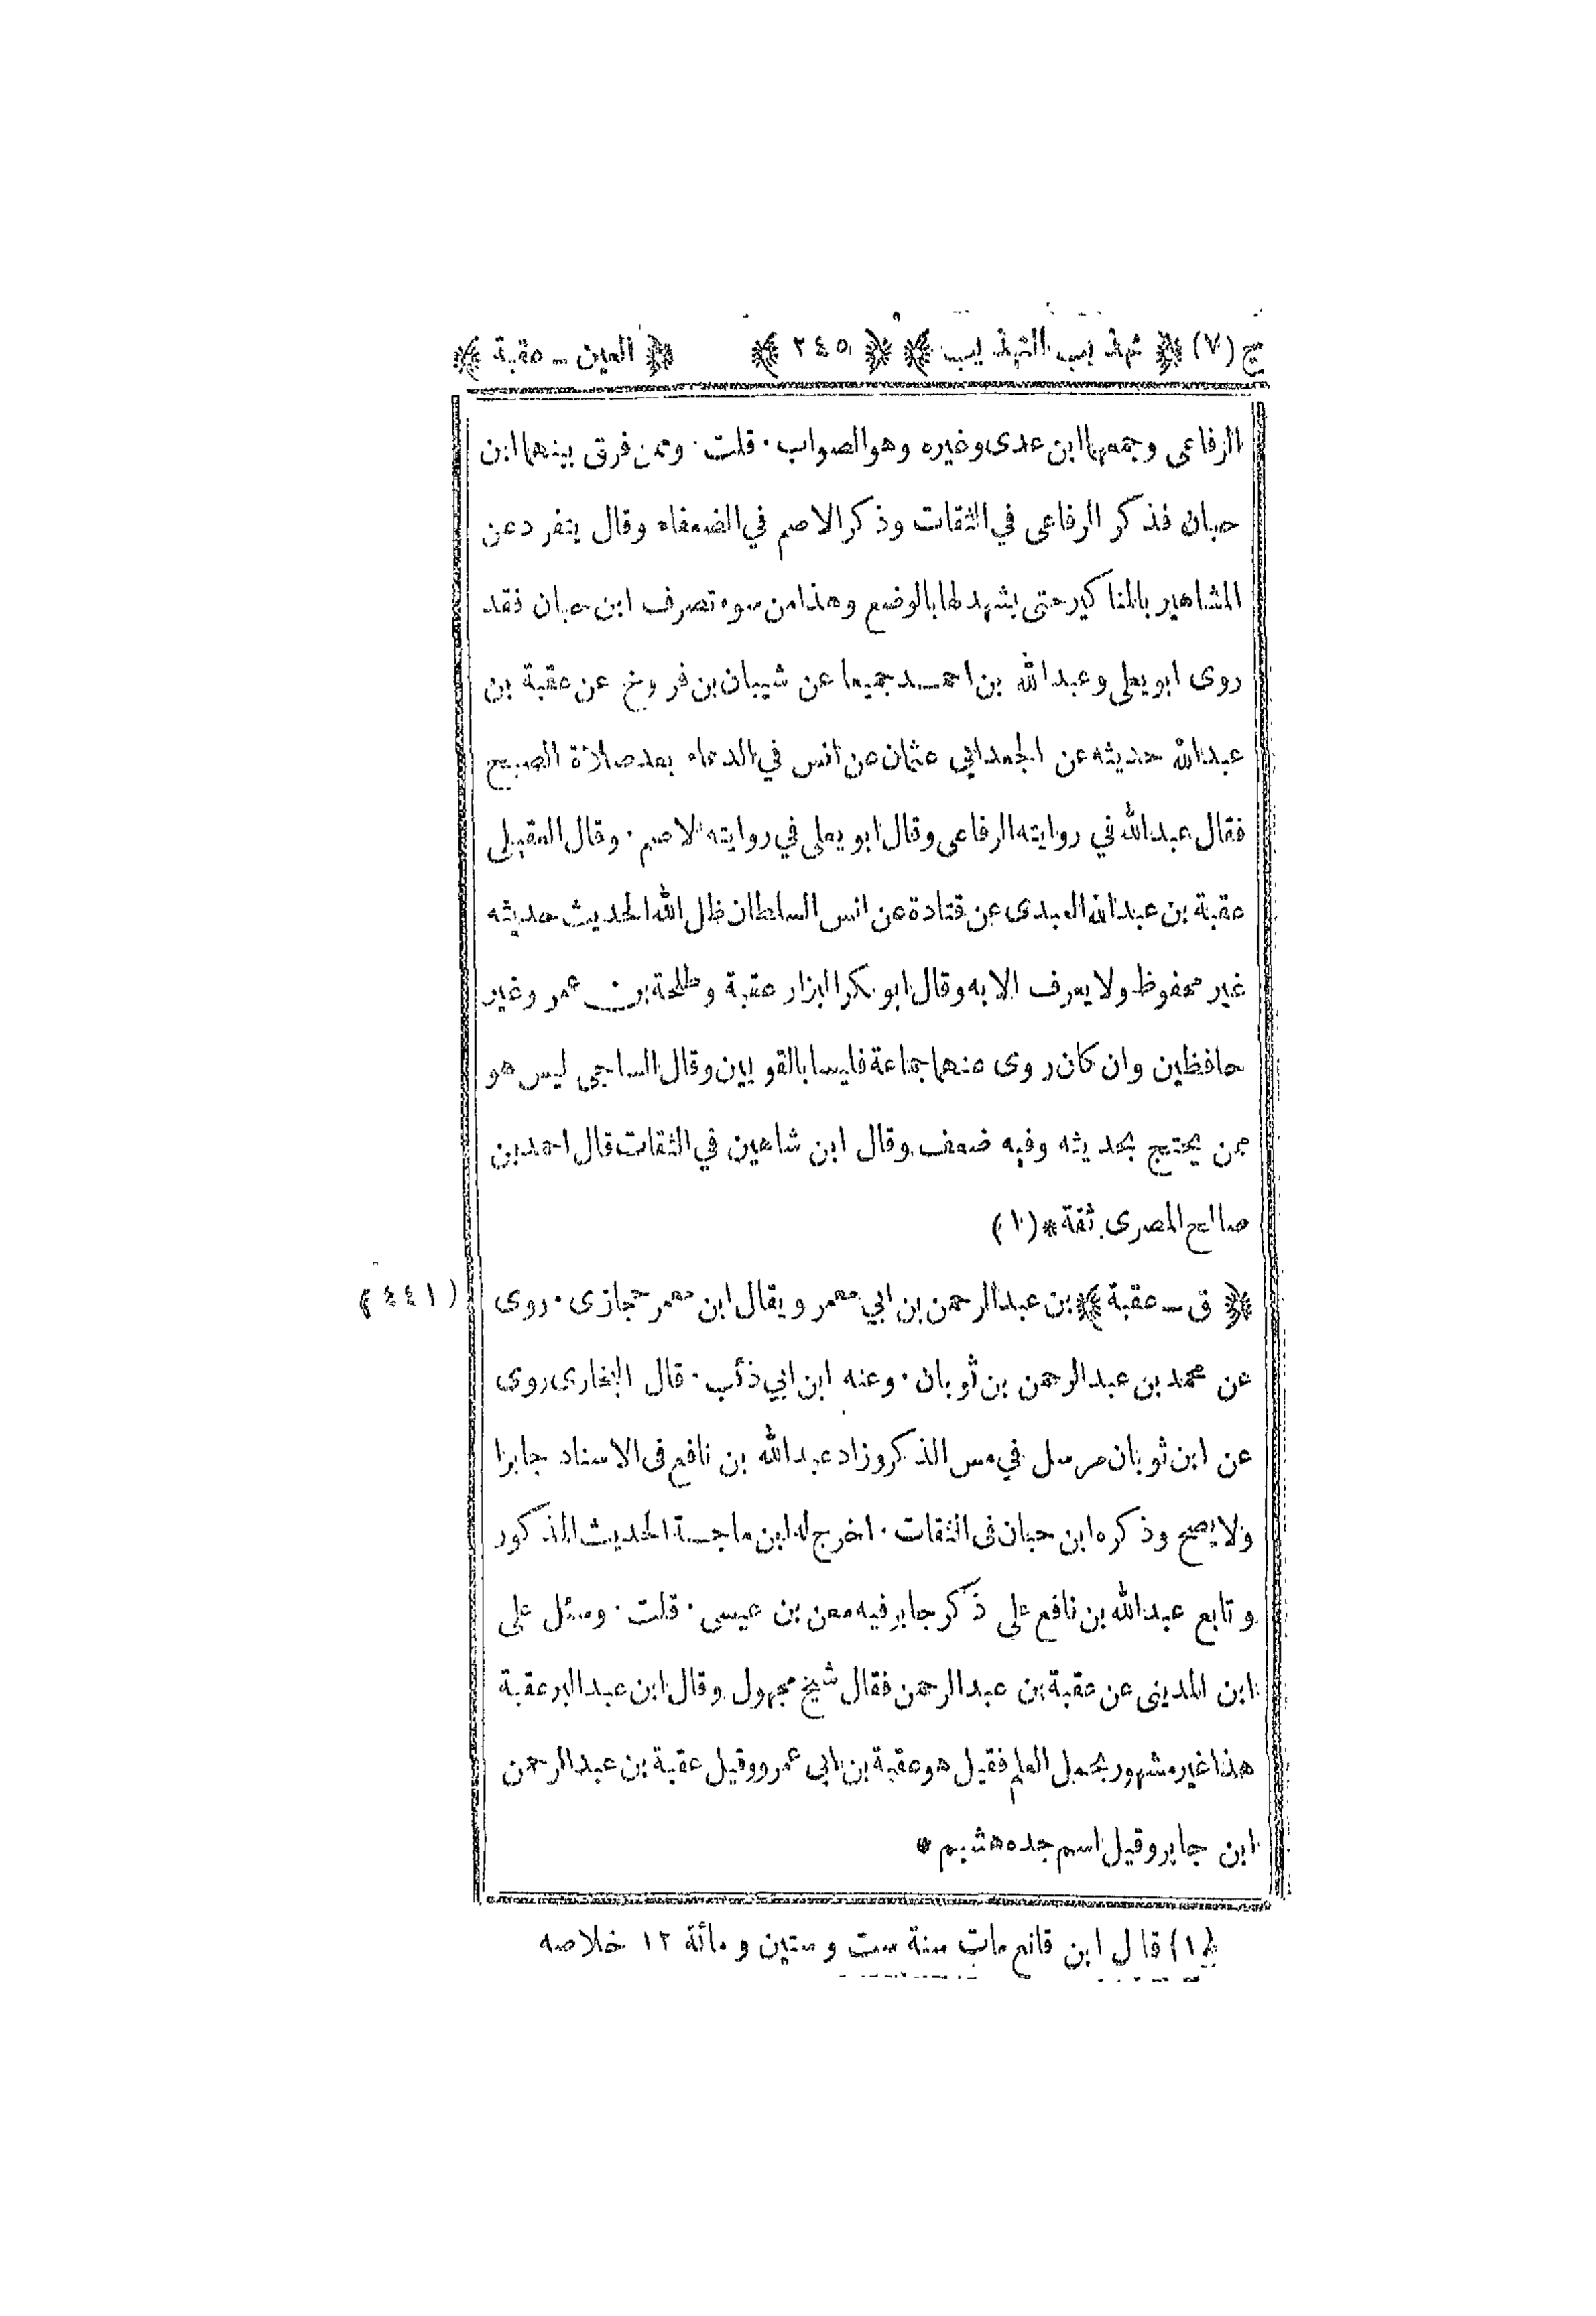 ج (٧) ﴿ تهذيب التهذيب ﴾ ﴿ ٢٤٥ ﴾ ﴿ العين ـ عقبة ﴾
الرفاعى وجمعهما ابن عدى وغيره وهو الصواب · قلت · وممن فرق بينهما ابن
حبان فذكر الرفاعى في الثقات وذكر الاصم في الضعفاء وقال ينفرد عن
المشاهير بالمناكير حتى يشهد لها بالوضع وهذا من سوء تصرف ابن حبان فقد
روى ابو يعلى وعبد الله بن احمد جميعا عن شيبان بن فروخ عن عقبة بن
عبد الله حديثه عن الجعد ابي عثمان عن انس في الدعاء بعد صلاة الصبح
فقال عبد الله في روايته الرفاعى وقال ابو يعلى في روايته الاصم · وقال العقيلى
عقبة بن عبد الله العبدى عن قتادة عن انس السلطان ظل الله الحديث حديثه
غير محفوظ ولا يعرف الا به وقال ابو بكر البزار عقبة وطلحة بن عمر وغير
حافظين وان كان روى عنهما جماعة فليسا بالقويين وقال الساجى ليس هو
ممن يحتج بحديثه وفيه ضعف وقال ابن شاهين في الثقات قال احمد بن
صالح المصرى ثقة * (١)
﴿ ق ـ عقبة ﴾ بن عبد الرحمن بن ابي معمر ويقال ابن معمر حجازى · روى (٤٤١)
عن محمد بن عبد الرحمن بن ثوبان · وعنه ابن ابي ذئب · قال البخارى روى
عن ابن ثوبان مرسل في مس الذكر وزاد عبد الله بن نافع فى الاسناد جابرا
ولا يصح وذكره ابن حبان فى الثقات · اخرج له ابن ماجة الحديث المذكور
وتابع عبد الله بن نافع على ذكر جابر فيه معن بن عيسى · قلت · وسئل على
ابن المدينى عن عقبة بن عبد الرحمن فقال شيخ مجهول وقال ابن عبد البر عقبة
هذا غير مشهور بحمل العلم فقيل هو عقبة بن ابى عمرو وقيل عقبة بن عبد الرحمن
ابن جابر وقيل اسم جده هشيم *
(١) قال ابن قانع مات سنة ست و ستين و مائة ١٢ خلاصه